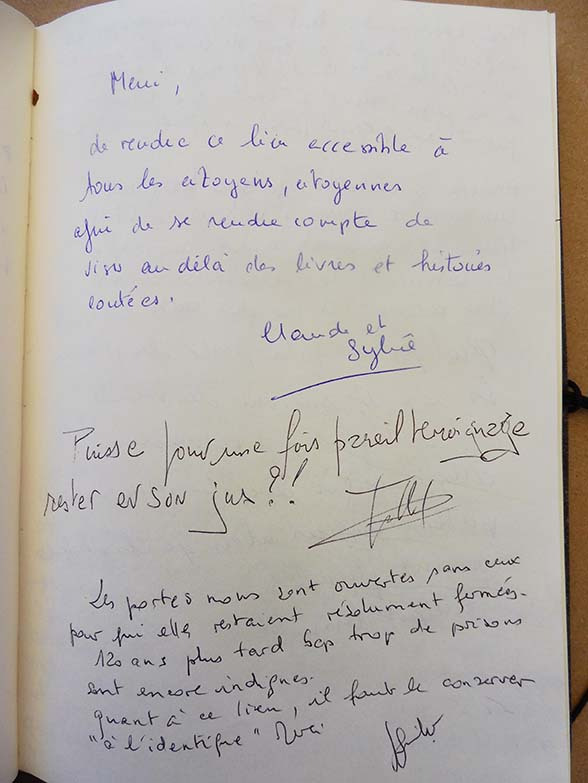 Merci,
de rendre ce lieu accessible à
tous les citoyens, citoyennes
afin de se rendre compte de
visu au délà des livres et histoires
contées.
Claude et
Sylvie
Puisse pour une fois pareil témoignage
rester en son jus ?!
Les portes nous sont ouvertes sans ceux
pour qui elles restaient résolument fermées.
120 ans plus tard bcp trop de prisons
sont encore indignes.
quant à ce lieu, il faut le conserver
"à l'identique" Merci